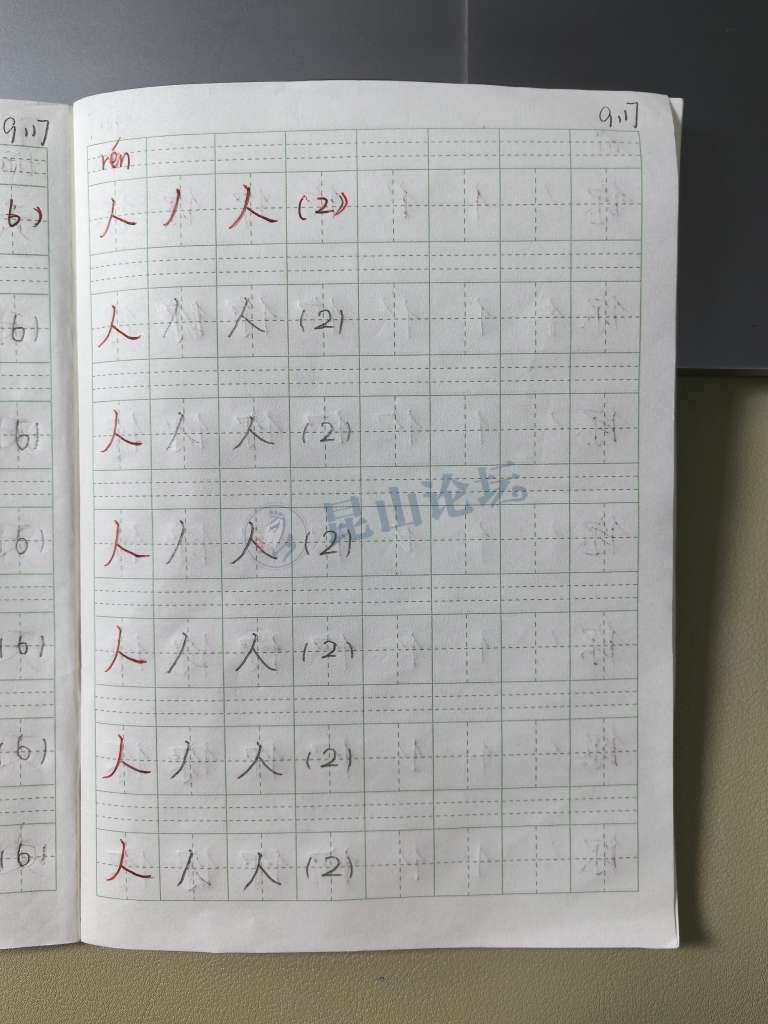 9.17
6)
6)
6)
(6)
(6)
(6)
(6)
9.17
rén
人 丿 人 (2)
人 丿 人 (2)
人 丿 人 (2)
人 丿 人 (2)
人 丿 人 (2)
人 丿 人 (2)
人 丿 人 (2)
昆山论坛